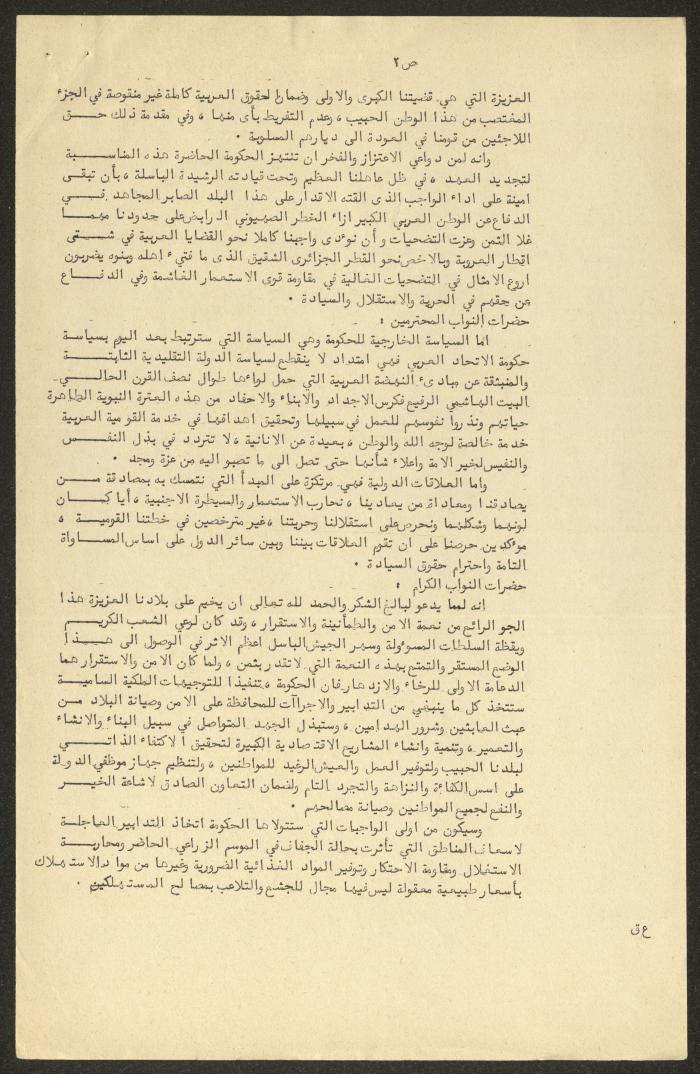 ص ٢
العزيزة التي هي قضيتنا الكبرى والاولى وضمانا لحقوق العربية كاملة غير منقوصة في الجزء
المغتصب من هذا الوطن الحبيب ، وعدم التفريط بأى منها ، وفي مقدمة ذلك حق
اللاجئين من قومنا في العودة الى ديارهم المسلوبة .
وانه لمن دواعي الاعتزاز والفخر ان تنتهز الحكومة الحاضرة هذه المناسبة
لتجديد العهد ، في ظل عاهلنا العظيم وتحت قيادته الرشيدة الباسلة ، بأن تبقى
امينة على اداء الواجب الذى القته الاقدار على هذا البلد الصابر المجاهد في
الدفاع عن الوطن العربي الكبير ازاء الخطر الصهيوني الرابض على حدودنا مهما
غلا الثمن وعزت التضحيات و أن نوءدى واجبنا كاملا نحو القضايا العربية في شتى
اقطار العروبة وبالاخص نحو القطر الجزائرى الشقيق الذى ما فتيء اهله وبنوه يضربون
اروع الامثال في التضحيات الغالية في مقاومة قوى الاستعمار الغاشمة وفي الدفاع
عن حقهم في الحرية والاستقلال والسيادة .
حضرات النواب المحترمين :
اما السياسة الخارجية للحكومة وهي السياسة التي سترتبط بعد اليوم بسياسة
حكومة الاتحاد العربي فهي امتداد لا ينقطع لسياسة الدولة التقليدية الثابتة
والمنبثقة عن مبادىء النهضة العربية التي حمل لواءها طوال نصف القرن الحالي
البيت الهاشمي الرفيع فكرس الاجداد والابناء والاحفاد من هذه العترة النبوية الطاهرة
حياتهم ونذروا نفوسهم للعمل في سبيلها وتحقيق اهدافها في خدمة القومية العربية
خدمة خالصة لوجه الله والوطن ، بعيدة عن الانانية ، لا تتردد في بذل النفس
والنفيس لخير الامة واعلاء شأنها حتى تصل الى ما تصبو اليه من عزة ومجد .
واما العلاقات الدولية فهي مرتكزة على المبدأ التي نتمسك به بمصادقة من
يصادقنا ومعاداة من يعادينا ، نحارب الاستعمار والسيطرة الاجنبية ، أيا كان
لونهما وشكلهما ونحرص على استقلالنا وحريتنا ، غير مترخصين في خطتنا القومية ،
موءكدين حرصنا على ان تقوم العلاقات بيننا وبين سائر الدول على اساس المساواة
التامة واحترام حقوق السيادة .
حضرات النواب الكرام :
انه لمما يدعو لبالغ الشكر والحمد لله تعالى ان يخيم على بلادنا العزيزة هذا
الجو الرائع من نعمة الامن والطمأنينة والاستقرار ، وقد كان لوعي الشعب الكريم
ويقظة السلطات المسوءولة وسهر الجيش الباسل اعظم الاثر في الوصول الى هذا
الوضع المستقر والتمتع بهذه النعمة التي لا تقدر بثمن ، ولما كان الامن والاستقرار هما
الدعامة الاولى للرخاء والازدهار فان الحكومة ، تنفيذا للتوجيهات الملكية السامية
ستتخذ كل ما ينبغي من التدابير والاجراآت للمحافظة على الامن وصيانة البلاد من
عبث العابثين وشرور الهدامين ، وستبذل الجهد المتواصل في سبيل البناء والانشاء
والتعمير ، وتنمية وانشاء المشاريع الاقتصادية الكبيرة لتحقيق الاكتفاء الذاتي
لبلدنا الحبيب ولتوفير العمل والعيش الرغيد للمواطنين ، ولتنظيم جهاز موظفي الدولة
على اسس الكفاءة والنزاهة والتجرد التام ولضمان التعاون الصادق لاشاعة الخير
والنفع لجميع المواطنين وصيانة مصالحهم .
وسيكون من اولى الواجبات التي ستتولاها الحكومة اتخاذ التدابير العاجلة
لاسعاف المناطق التي تأثرت بحالة الجفاف في الموسم الزراعي الحاضر ومحاربة
الاستغلال ومقاومة الاحتكار وتوفير المواد الغذائية الضرورية وغيرها من مواد الاستهلاك
بأسعار طبيعية معقولة ليس فيها مجال للجشع والتلاعب بمصالح المستهلكين .
ع ق